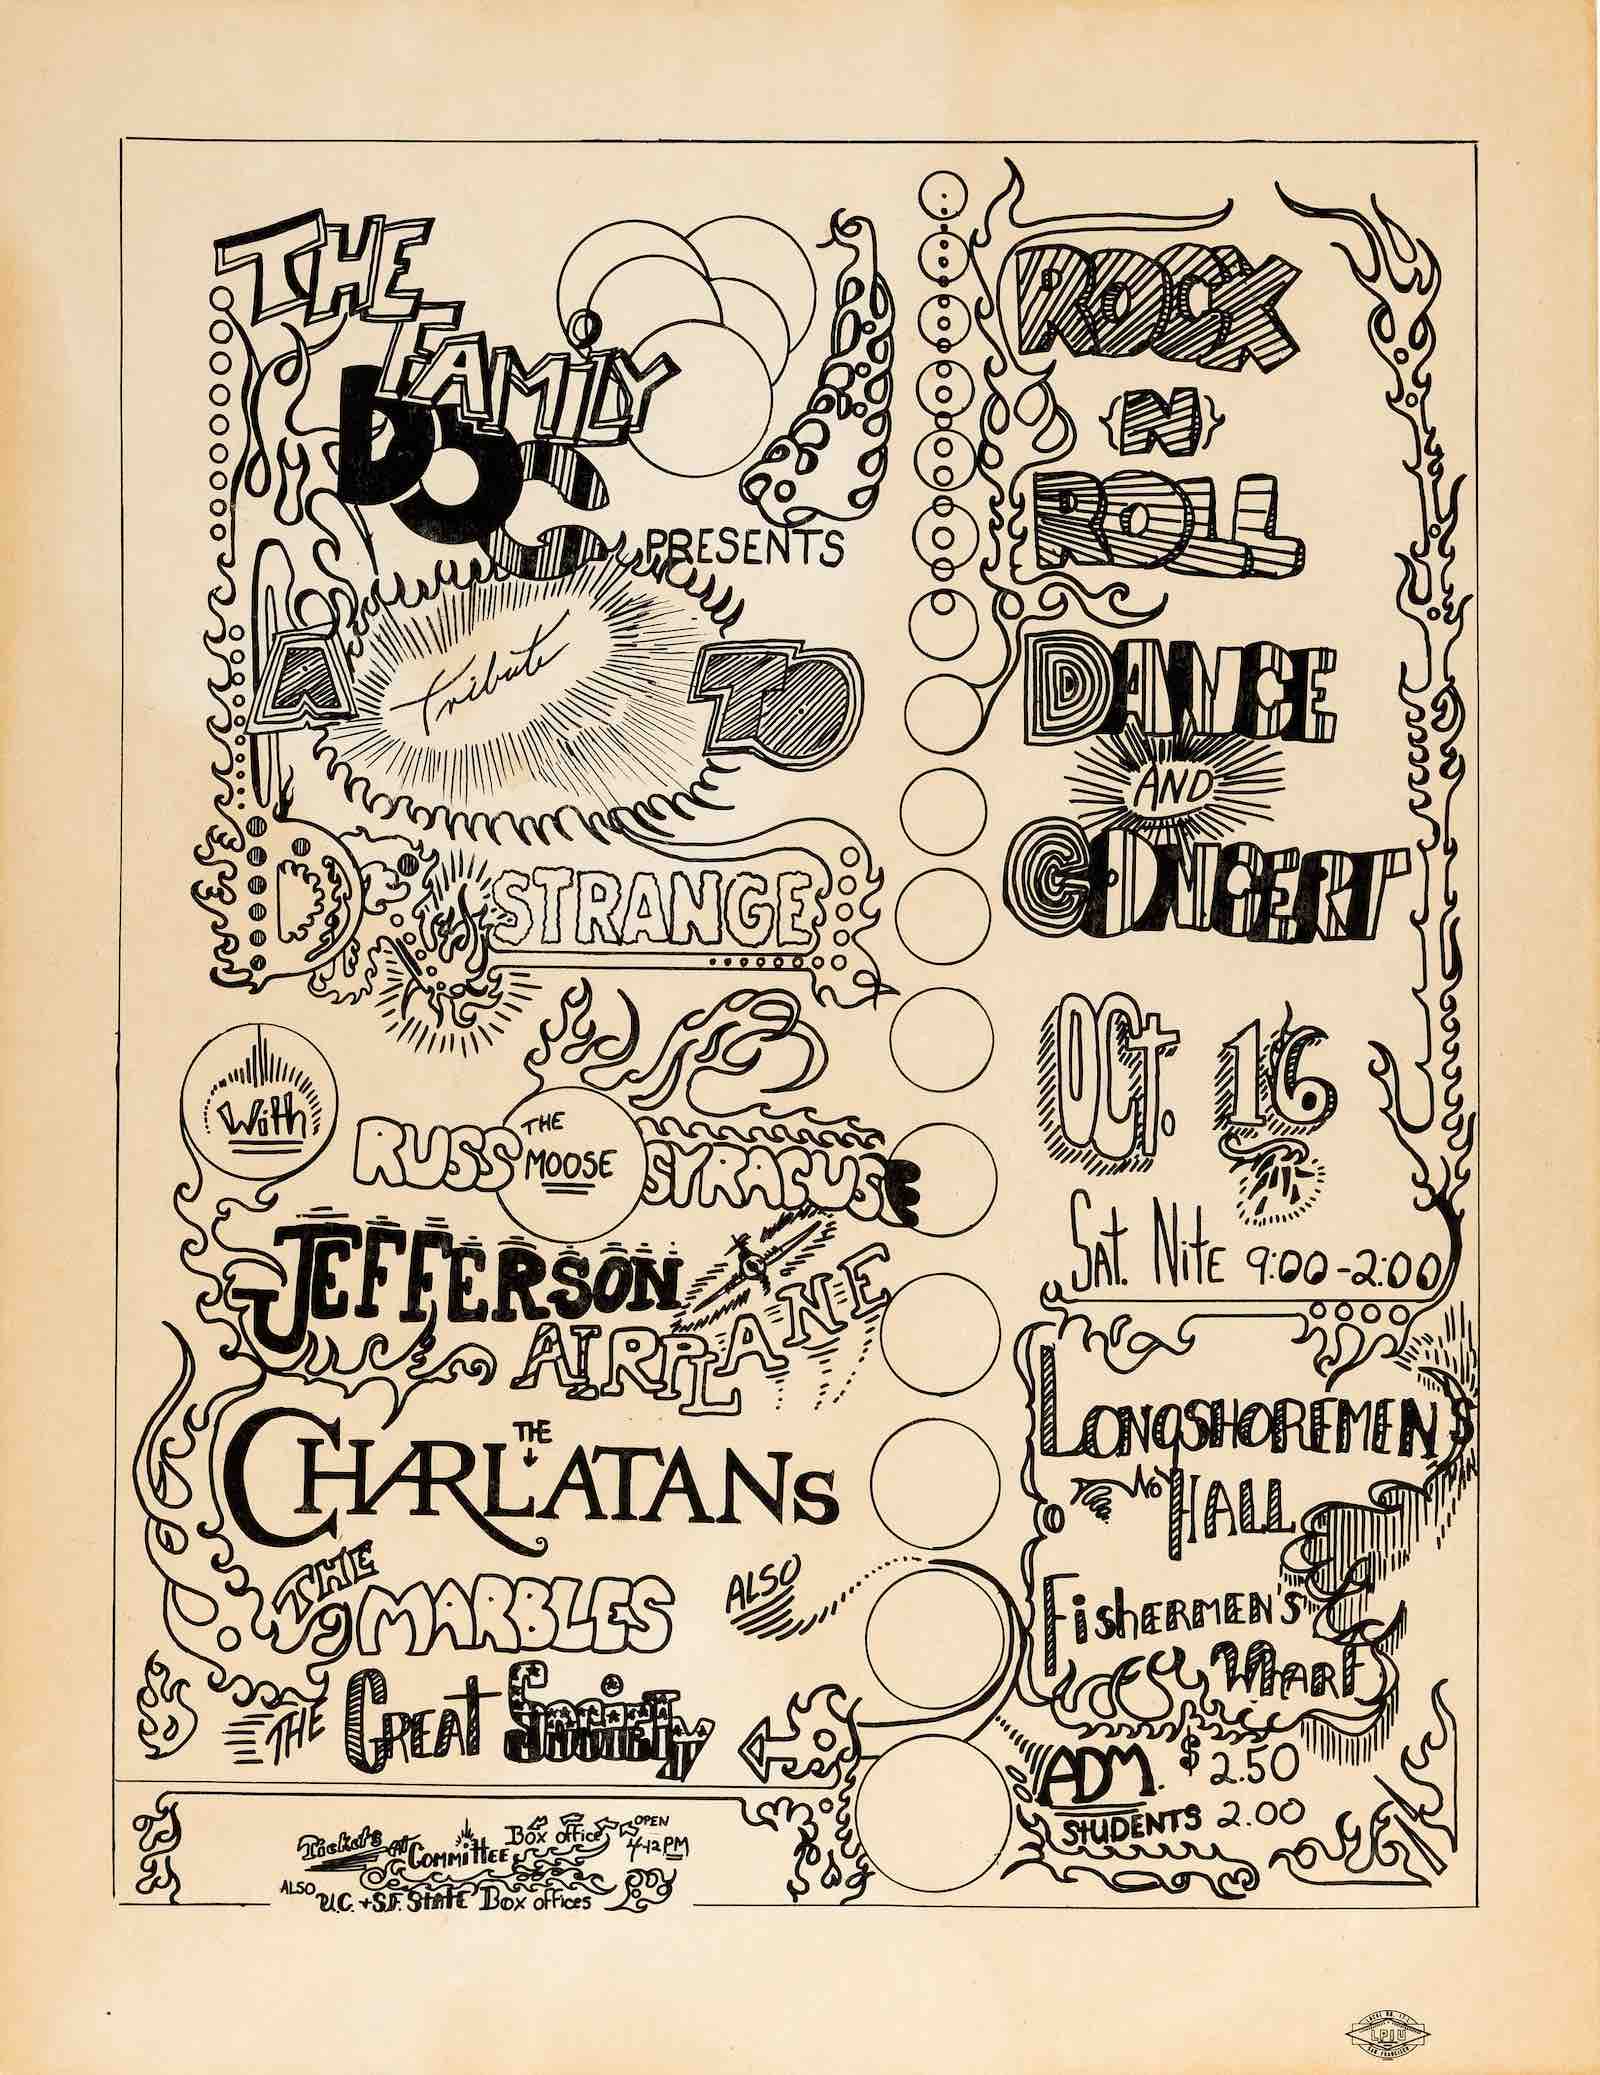 THE
FAMILY
DOG
PRESENTS
A Tribute TO
Dr. STRANGE
With
RUSS THE MOOSE SYRACUSE
JEFFERSON
AIRPLANE
THE
CHARLATANS
THE
MARBLES
ALSO
THE GREAT SOCIETY
Tickets At COMMITTEE Box office OPEN
4-12 PM
ALSO U.C. + S.F. State Box offices
ROCK
N
ROLL
DANCE
AND
CONCERT
OCT. 16
SAT. NITE 9:00-2:00
LONGSHOREMEN'S
HALL
FISHERMEN'S
WHARF
ADM. $2.50
STUDENTS 2.00
LOCAL NO. 17-L
LPIU
SAN FRANCISCO